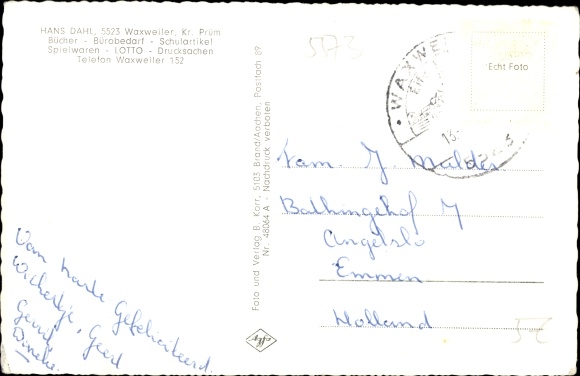 HANS DAHL, 5523 Waxweiler, Kr. Prüm
Bücher - Bürobedarf - Schulartikel
Spielwaren - LOTTO - Drucksachen
Telefon Waxweiler 152
5573
Foto und Verlag B. Korr, 5103 Brand/Aachen, Postfach 89
Nr. 48064 A - Nachdruck verboten
WAXWE
Echt Foto
Fam. J. Mulder
Balhingehof 7
Angelslo
Emmen
Holland
Van harte Gefeliciteerd.
Wichertje, Geert
Gerrit,
Dineke.
5€